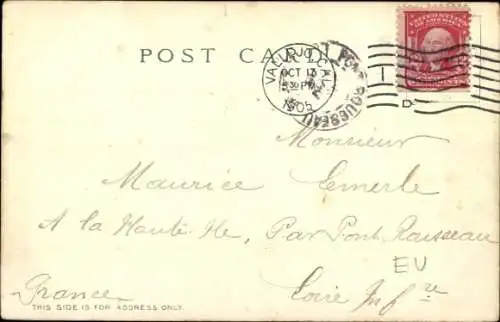 POST CARD
VALLEJO, CAL.
OCT 13
30 PM
1905
PONT ROUSSEAU
UNITED STATES OF AMERICA
Monsieur
Maurice Emerle
A la Haute-Ile, Par Pont-Rousseau
EU
France
Loire Infre
THIS SIDE IS FOR ADDRESS ONLY.